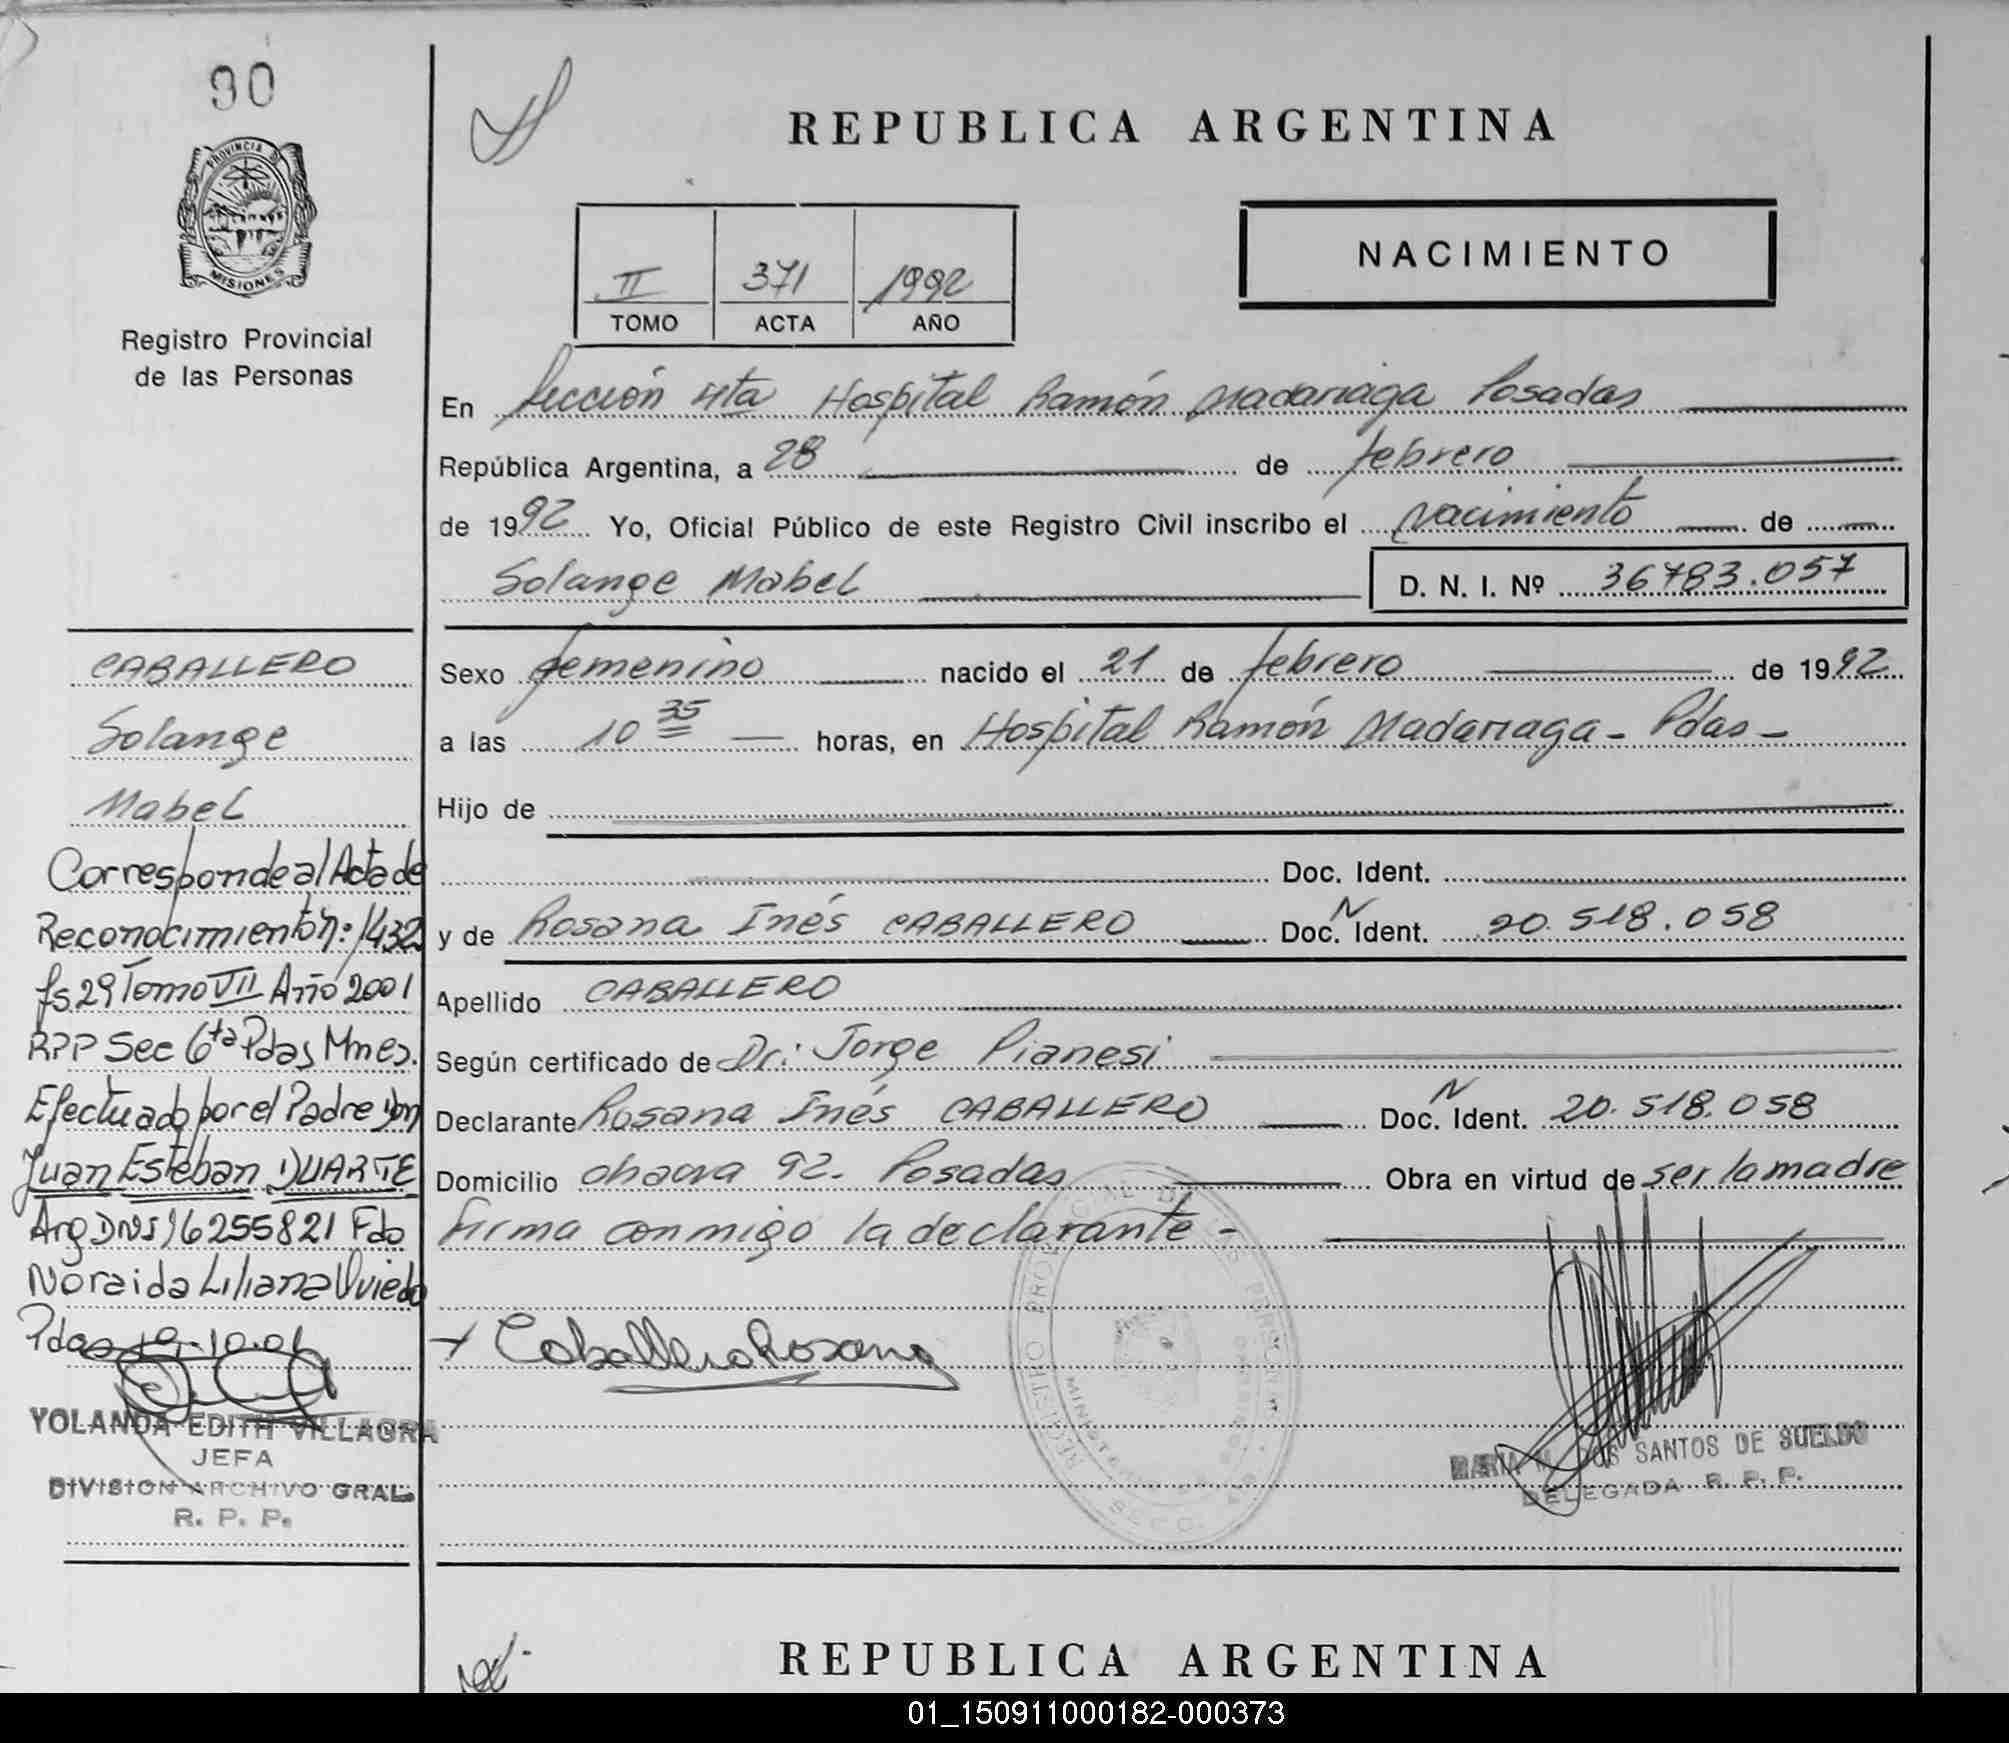 90
PROVINCIA DE
MISIONES
Registro Provincial
de las Personas
REPUBLICA ARGENTINA
NACIMIENTO
II 371 1992
TOMO ACTA AÑO
En Sección 4ta Hospital Ramón Madariaga Posadas
República Argentina, a 28 de febrero
de 1992 Yo, Oficial Público de este Registro Civil inscribo el nacimiento de
Solange Mabel D. N. I. Nº 36783.057
Sexo femenino nacido el 21 de febrero de 1992
a las 10 35 horas, en Hospital Ramón Madariaga - Pdas -
Hijo de
Doc. Ident.
y de Rosana Inés CABALLERO Doc. N Ident. 20.518.058
Apellido CABALLERO
Según certificado de Dr: Jorge Pianesi
Declarante Rosana Inés CABALLERO Doc. N Ident. 20.518.058
Domicilio 92. Posadas Obra en virtud de ser la madre
firma conmigo la declarante -
Caballero Rosana
MARIA DOS SANTOS DE SUELDO
DELEGADA R. P. P.
CABALLERO
Solange
Mabel
Corresponde al Acta de
Reconocimiento n: 1432
fs 29 Tomo VII Año 2001
RPP Sec 6ta Pdas Mnes.
Efectuado por el Padre Don
Juan Esteban DUARTE
Arg DNI 16255821 Fdo
Noraida Liliana Oviedo
Pdas 19-10-01
YOLANDA EDITH VILLAGRA
JEFA
DIVISION ARCHIVO GRAL.
R. P. P.
REPUBLICA ARGENTINA
01_150911000182-000373